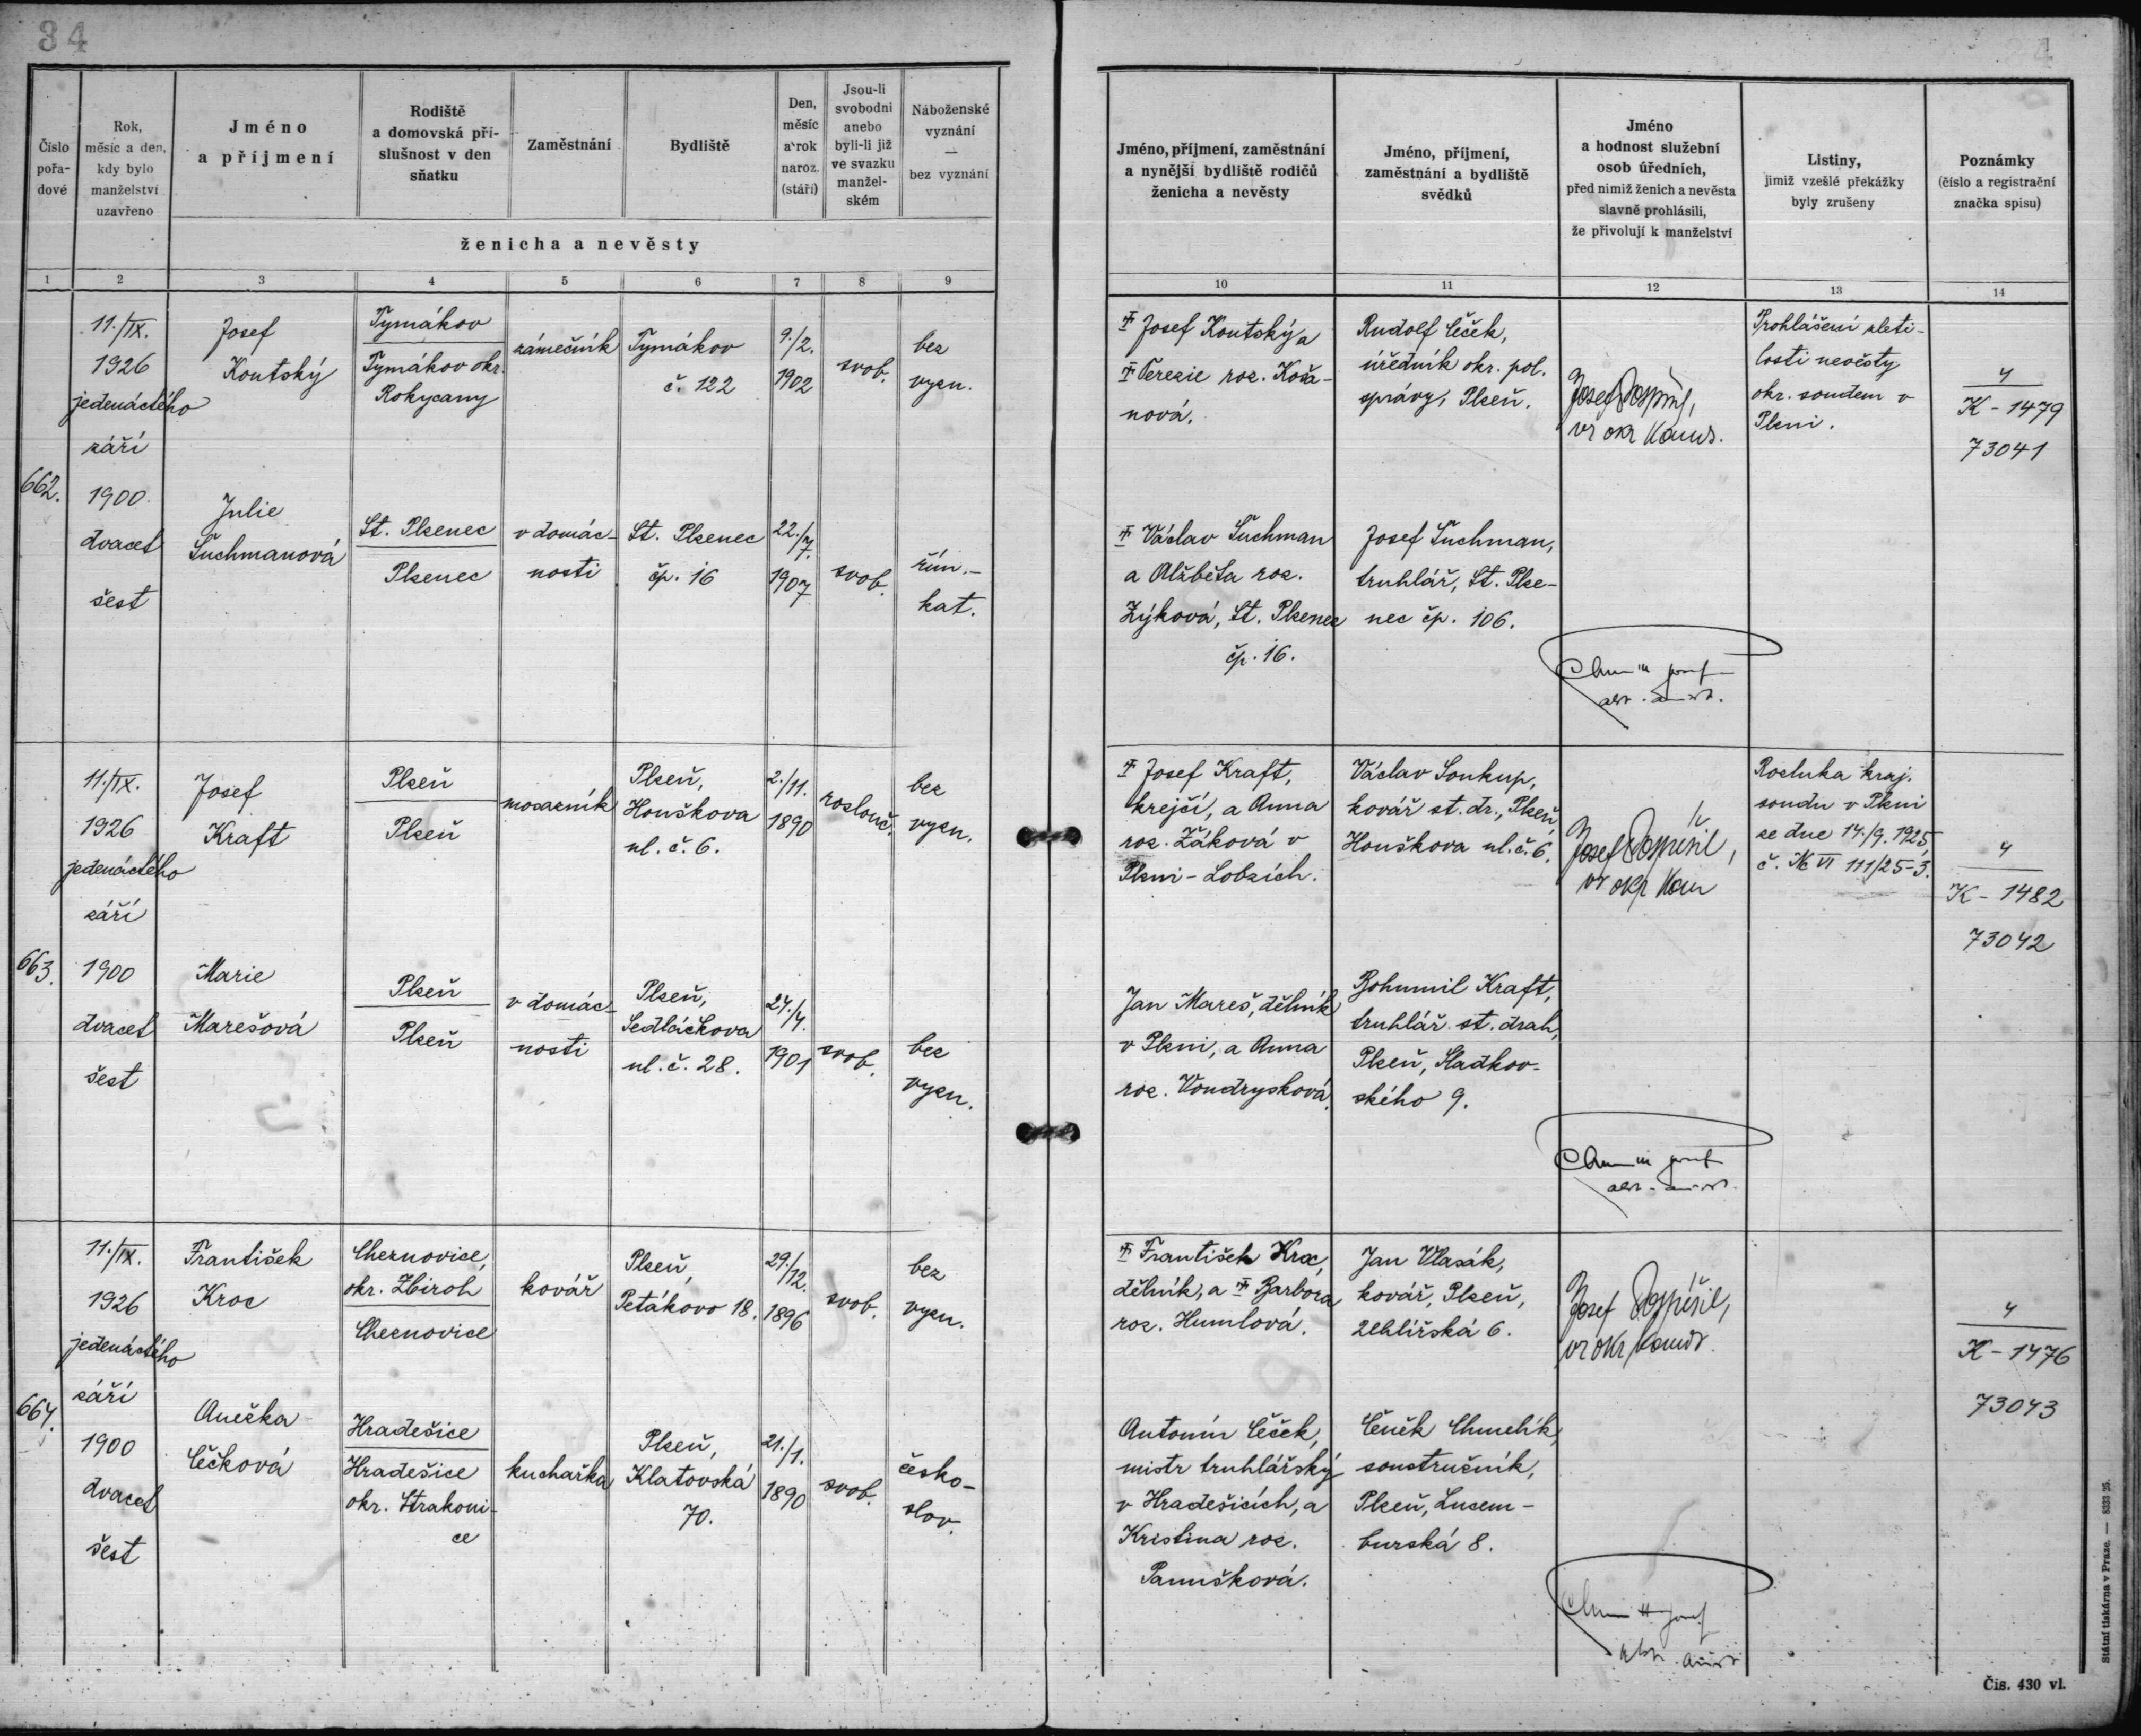 34
Číslo
pořa-
dové
Rok,
měsíc a den,
kdy bylo
manželství
uzavřeno
Jméno
a příjmení
Rodiště
a domovská pří-
slušnost v den
sňatku
Zaměstnání
Bydliště
Den,
měsíc
a rok
naroz.
(stáří)
Jsou-li
svobodni
anebo
byli-li již
ve svazku
manžel-
ském
Náboženské
vyznání
—
bez vyznání
ženicha a nevěsty
Jméno, příjmení, zaměstnání
a nynější bydliště rodičů
ženicha a nevěsty
Jméno, příjmení,
zaměstnání a bydliště
svědků
Jméno
a hodnost služební
osob úředních,
před nimiž ženich a nevěsta
slavně prohlásili,
že přivolují k manželství
Listiny,
jimiž vzešlé překážky
byly zrušeny
Poznámky
(číslo a registrační
značka spisu)
1 2 3 4 5 6 7 8 9 10 11 12 13 14
662.
11./IX.
1926
jedenáctého
září
1900
dvacet
šest
Josef
Koutský
Tymákov
Tymákov okr.
Rokycany
zámečník
Tymákov
č. 122
9./2.
1902
svob.
bez
vyzn.
Josef Koutský a
Terezie roz. Koža-
nová.
Rudolf Čeček,
úředník okr. pol.
správy, Plzeň.
Josef Pospíšil,
Prohlášení zleti-
losti nevěsty
okr. soudem v
Plzni.
4
K - 1479
73041
Julie
Šuchmanová
St. Plzenec
Plzenec
v domác-
nosti
St. Plzenec
čp. 16
22./7.
1907
svob.
řím.-
kat.
Václav Šuchman
a Alžběta roz.
Zýková, St. Plzenec
čp. 16.
Josef Šuchman,
truhlář, St. Plze-
nec čp. 106.
663.
11./IX.
1926
jedenáctého
září
1900
dvacet
šest
Josef
Kraft
Plzeň
Plzeň
mosazník
Plzeň,
Houškova
ul. č. 6.
2./11.
1890
rozlouč.
bez
vyzn.
Josef Kraft,
krejčí, a Anna
roz. Žáková v
Plzni - Lobzích.
Václav Soukup,
kovář st. dr., Plzeň,
Houškova ul. č. 6.
Josef Pospíšil,
Rozluka kraj.
soudu v Plzni
ze dne 14./9. 1925,
č. Nc VI 111/25-3.
4
K - 1482
73042
Marie
Marešová
Plzeň
Plzeň
v domác-
nosti
Plzeň,
Sedláčkova
ul. č. 28.
24./4.
1901
svob.
bez
vyzn.
Jan Mareš, dělník
v Plzni, a Anna
roz. Vondrysková.
Bohumil Kraft,
truhlář st. drah,
Plzeň, Sladkov-
ského 9.
664.
11./IX.
1926
jedenáctého
září
1900
dvacet
šest
František
Kroc
Cheznovice,
okr. Zbiroh
Cheznovice
kovář
Plzeň,
Petákova 18.
29./12.
1896
svob.
bez
vyzn.
František Kroc,
dělník, a Barbora
roz. Humlová.
Jan Vlasák,
kovář, Plzeň,
Uhlířská 6.
Josef Pospíšil,
4
K - 1476
73043
Anežka
Čečková
Hradešice
Hradešice
okr. Strakoni-
ce
kuchařka
Plzeň,
Klatovská
70.
21./1.
1890
svob.
česko-
slov.
Antonín Čeček,
mistr truhlářský
v Hradešicích, a
Kristina roz.
Panušková.
Čeněk Chmelík,
soustružník,
Plzeň, Lucem-
burská 8.
Státní tiskárna v Praze. — 8333 25.
Čís. 430 vl.